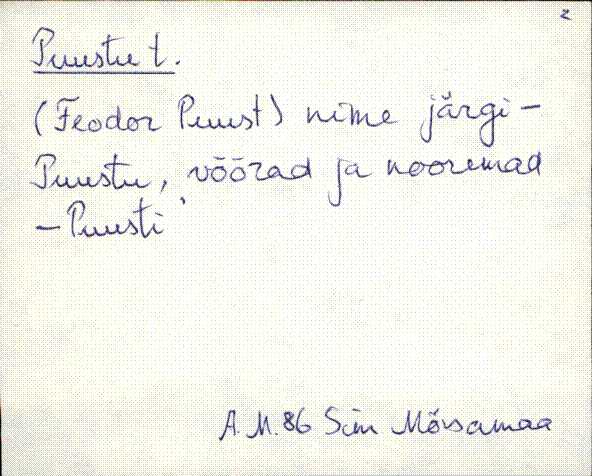 2
Puustu t.
(Feodor Puust) nime järgi -
Puustu, võõrad ja nooremad
- Puusti
A.M.86 Siiri Mõrsamaa